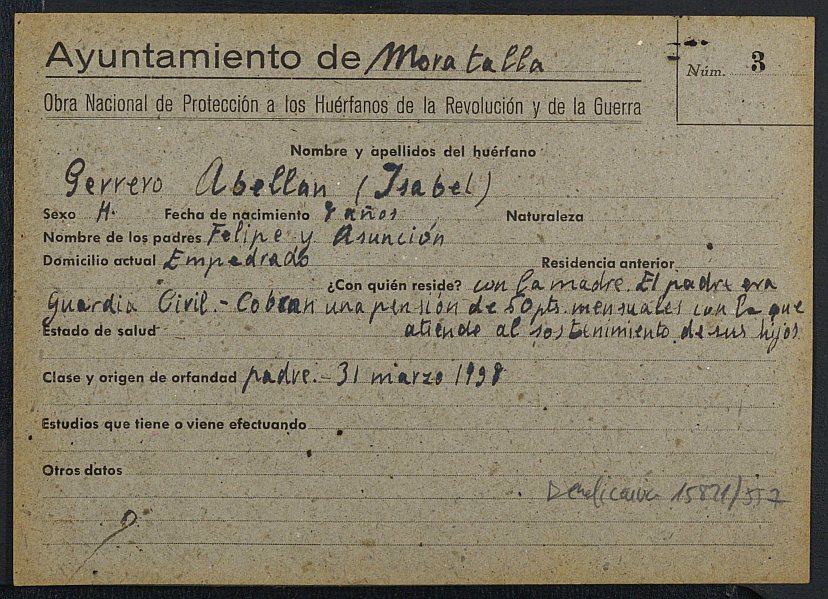 Ayuntamiento de Moratalla
Núm. 3
Obra Nacional de Protección a los Huérfanos de la Revolución y de la Guerra
Nombre y apellidos del huérfano
Gerrero Abellan (Isabel)
Sexo H. Fecha de nacimiento 7 años Naturaleza
Nombre de los padres Felipe y Asunción
Domicilio actual Empedrado Residencia anterior
¿Con quién reside? con la madre. El padre era
Guardia Civil.- Cobran una pensión de 50 pts. mensuales con la que
Estado de salud atiende al sostenimiento de sus hijos
Clase y origen de orfandad padre.- 31 marzo 1938
Estudios que tiene o viene efectuando
Otros datos